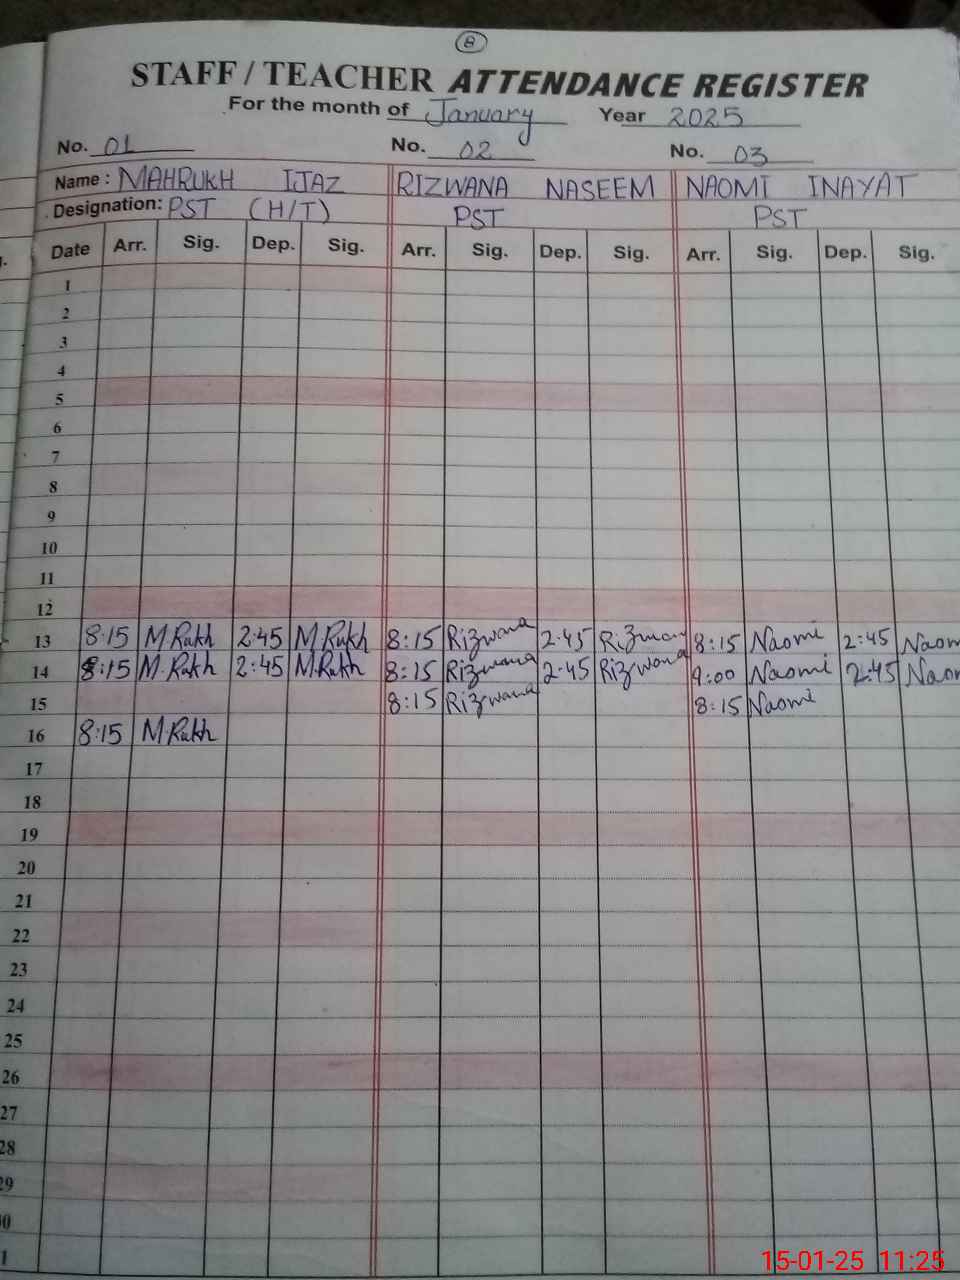 8
STAFF / TEACHER ATTENDANCE REGISTER
For the month of January Year 2025
No. 01 No. 02 No. 03
Name : MAHRUKH IJAZ RIZWANA NASEEM NAOMI INAYAT
Designation: PST (H/T) PST PST
Date Arr. Sig. Dep. Sig. Arr. Sig. Dep. Sig. Arr. Sig. Dep. Sig.
1
2
3
4
5
6
7
8
9
10
11
12
13 8:15 M.Rukh 2:45 M.Rukh 8:15 Rizwana 2:45 Rizwana 8:15 Naomi 2:45 Naom
14 8:15 M.Rukh 2:45 M.Rukh 8:15 Rizwana 2:45 Rizwana 9:00 Naomi 2:45 Naom
15 8:15 Rizwana 8:15 Naomi
16 8:15 M.Rukh
17
18
19
20
21
22
23
24
25
26
27
28
29
30
1
15-01-25 11:25